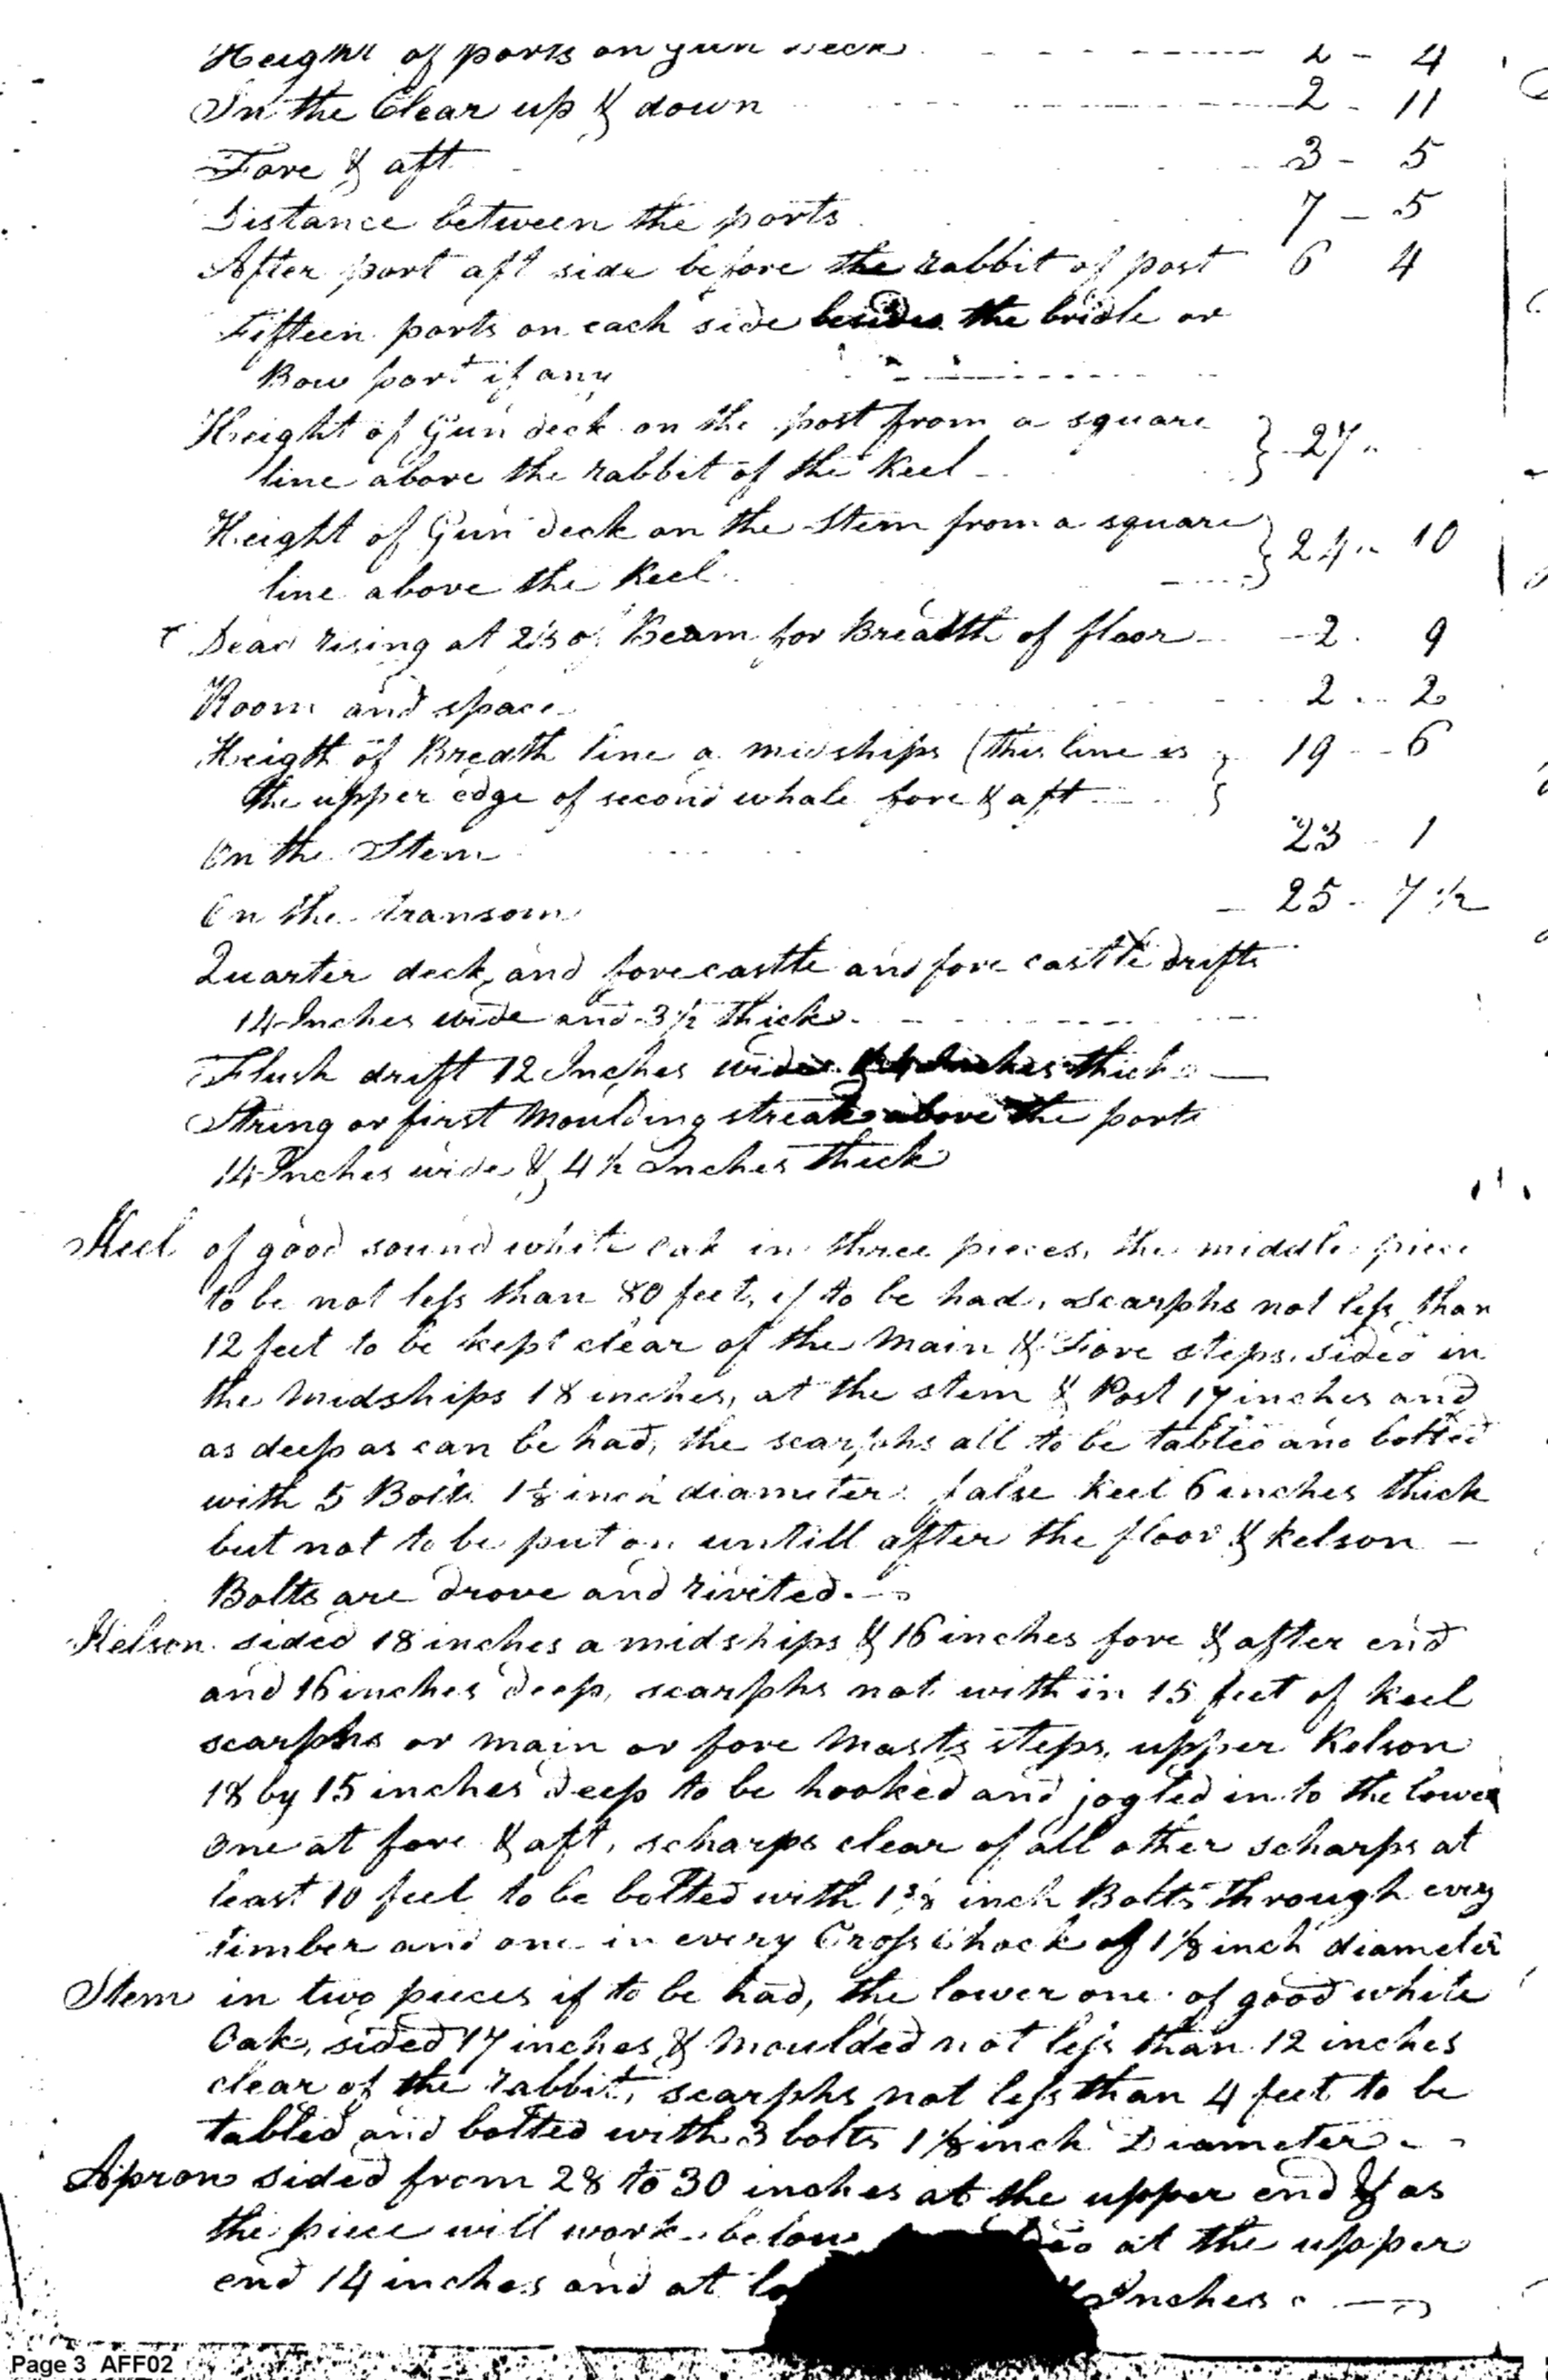 Height of ports on Gun deck 2 - 4
In the Clear up & down 2 - 11
Fore & aft 3 - 5
Distance between the ports 7 - 5
After port aft side before the rabbit of post 6 4
Fifteen ports on each side besides the bridle or
Bow port if any
Height of Gun deck on the post from a square
line above the rabbit of the Keel } 27 "
Height of Gun deck on the Stem from a square
line above the Keel } 24 " 10
Dead rising at 2/3 of Beam for Breadth of floor 2 . 9
Room and space 2 .. 2
Heigth of Breadth line a midships (this line is } 19 - 6
the upper edge of second whale fore & aft
On the Stem 23 - 1
On the transom 25 - 7 1/2
Quarter deck and forecastle and fore castle drifts
14 Inches wide and 3 1/2 thick
Flush drift 12 Inches wide & 4 Inches thick
String or first Moulding streak above the ports
14 Inches wide & 4 1/2 Inches thick
Keel of good sound white oak in three pieces, the middle piece
to be not less than 80 feet, if to be had, scarphs not less than
12 feet to be kept clear of the Main & Fore steps, sided in
the Midships 18 inches, at the stem & Post 17 inches and
as deep as can be had, the scarphs all to be tabled and bolted
with 5 Bolts 1 1/8 inch diameter. false Keel 6 inches thick
but not to be put on untill after the floor & kelson -
Bolts are drove and rivited.
Kelson sided 18 inches a midships & 16 inches fore & after end
and 16 inches deep, scarphs not with in 15 feet of keel
scarphs or main or fore Masts steps, upper Kelson
18 by 15 inches deep to be hooked and jogled in to the lower
one at fore & aft, scharps clear of all other scharps at
least 10 feet to be bolted with 1 3/8 inch Bolts through every
timber and one in every Cross Chock of 1 1/8 inch diameter
Stem in two pieces if to be had, the lower one of good white
Oak, sided 17 inches & Moulded not less than 12 inches
clear of the rabbit, scarphs not less than 4 feet to be
tabled and bolted with 3 bolts 1 1/8 inch Diameter
Apron sided from 28 to 30 inches at the upper end & as
the piece will work below at the upper
end 14 inches and at Inches
Page 3 AFF02